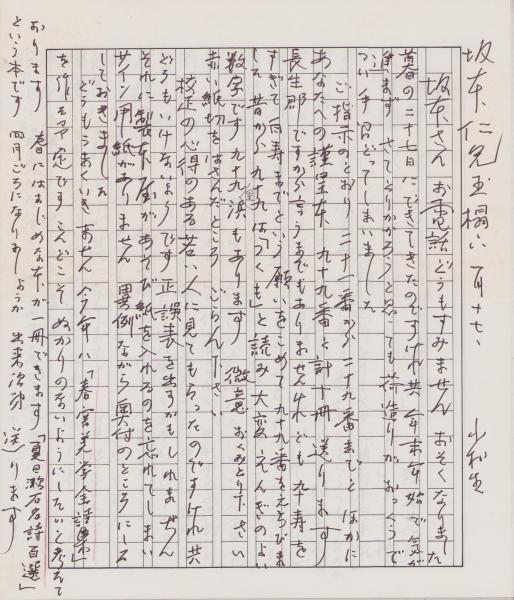 坂本仁兄玉榻い 一月十七、 小和生
坂本さん お電話どうもすみません おそくなりました
暮の二十七日にできてきたのですけれ共 年末年始で気が
進まず さてとりかかろうと思っても荷造りがおっくうで
つい手間どってしまいました
ご指示のとおり 二十一番から二十九番までと ほかに
あなたへの謹呈本 九十九番と計十冊 送ります
長生郡ですから言うまでもありませんけれども 九十寿を
すぎて白寿までという願いをこめて 九十九番をえらびま
した 昔から九十九は「つくも」と読み 大変えんぎのよい
数字です 九十九里浜もあります 微意おくみとり下さい
赤い紙切をはさんだところ ごらん下さい
校正の心得のある若い人に見てもらったのですけれ共
どうもいけないようです 正誤表を出すかもしれません
それに製本屋があそび紙を入れるのを忘れてしまい
サイン用紙がありません 異例ながら奥付のところにし
しておきました
どうもうまくいきません 今年は「春宮美学全詩集」
を作る予定です こんどこそ ぬかりのないようにしたいと考えて
おります 春にはまじめな本が一冊できます 「夏目漱石名詩百選」
という本です 四月ごろになりましょうか 出来次第 送ります